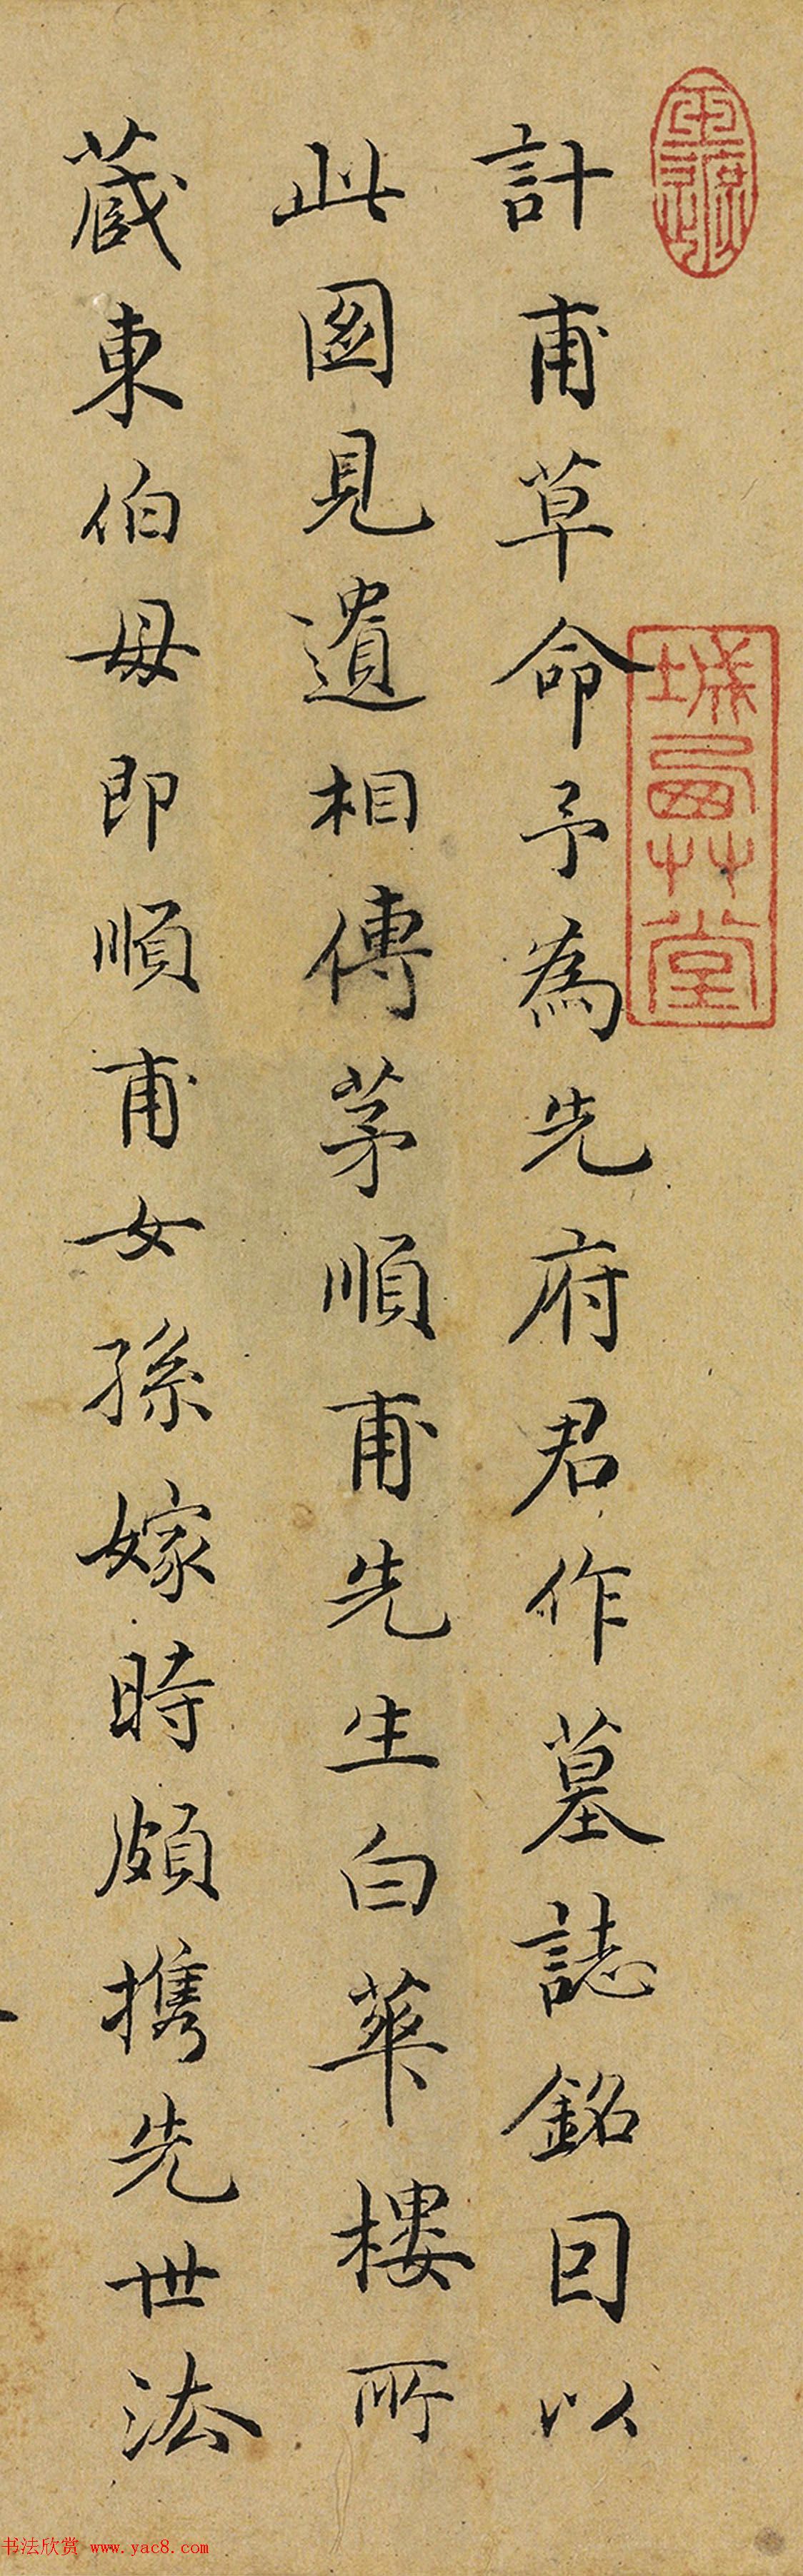 計甫草命予為先府君作墓誌銘因以
此圖見遺相傳茅順甫先生白華樓所
蔵東伯母即順甫女孫嫁時頗攜先世法
書法欣赏 www.yac8.com